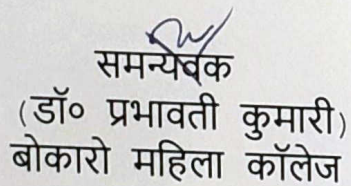 समन्यवक
(डॉ० प्रभावती कुमारी)
बोकारो महिला कॉलेज